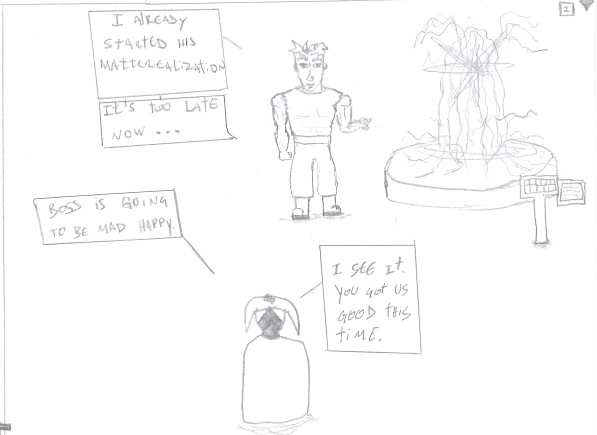 2
I AlREADY
StARtED HIS
MAttEREALIZATION
It's too LATE
NOW ...
BOSS iS GOING
TO BE MAD HAPPY.
I SEE It.
YOU GOt US
GOOD tHIS
tIME.